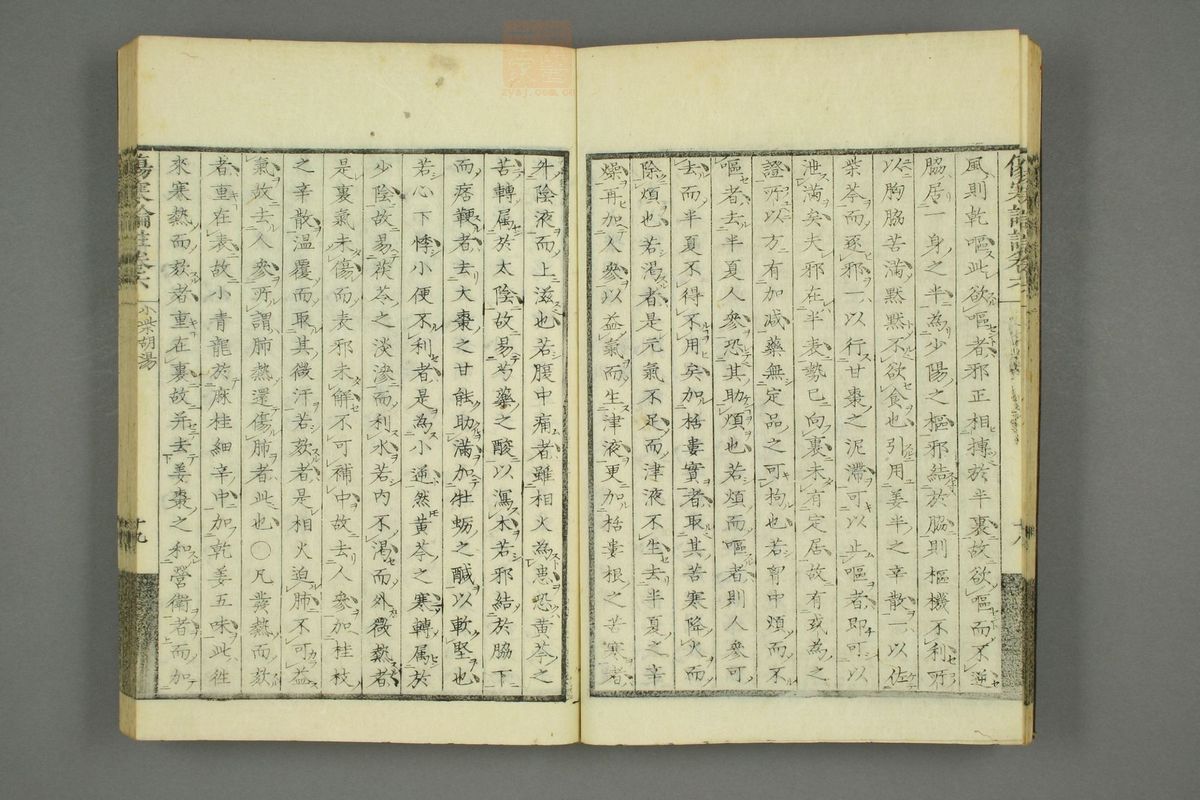 風則乾嘔此欲嘔者邪正相搏於半裏故欲嘔而不逆
脇居一身之半為少陽之樞邪結於脇則樞機不利所
以胸脇苦満黙黙不欲食也引用姜半之辛散一以佐
柴芩而逐邪一以行甘棗之泥滯可以止嘔者即可以
泄满矣夫邪在半表勢已向裏未有定居故有或為之
證所以方有加减藥無定品之可拘也若胷中煩而不
嘔者去半夏人參恐其助煩也若煩而嘔者則人參可
去而半夏不得不用矣加栝蔞實者取其苦寒降火而
除煩也若渴者是元氣不足而津液不生去半夏之辛
燥再加人參以益氣而生津液更加栝蔞根之苦寒者
升陰液而上滋也若腹中痛者雖相火為患恐黄芩之
苦轉属於太陰故易芍藥之酸以瀉木若邪結於脇下
而痞鞕者去大棗之甘能助滿加牡蛎之鹹以軟堅也
若心下悸小便不利者是為小逆然黄芩之寒轉属於
少陰故易茯苓之淡滲而利水若内不渴而外微熱者
是裏氣未傷而表邪未解不可補中故去人參加桂枝
之辛散温覆而取其微汗若欬者是相火迫肺不可益
氣故去人參所謂肺熱還傷肺者此也○凡發熱而欬
者重在表故小青龍於麻桂細辛中加乾姜五味此徃
來寒熱而欬者重在裏故并去姜棗之和營衛者而加
傷寒論註卷六
小柴胡湯
十九
十八
zysj.com.cn